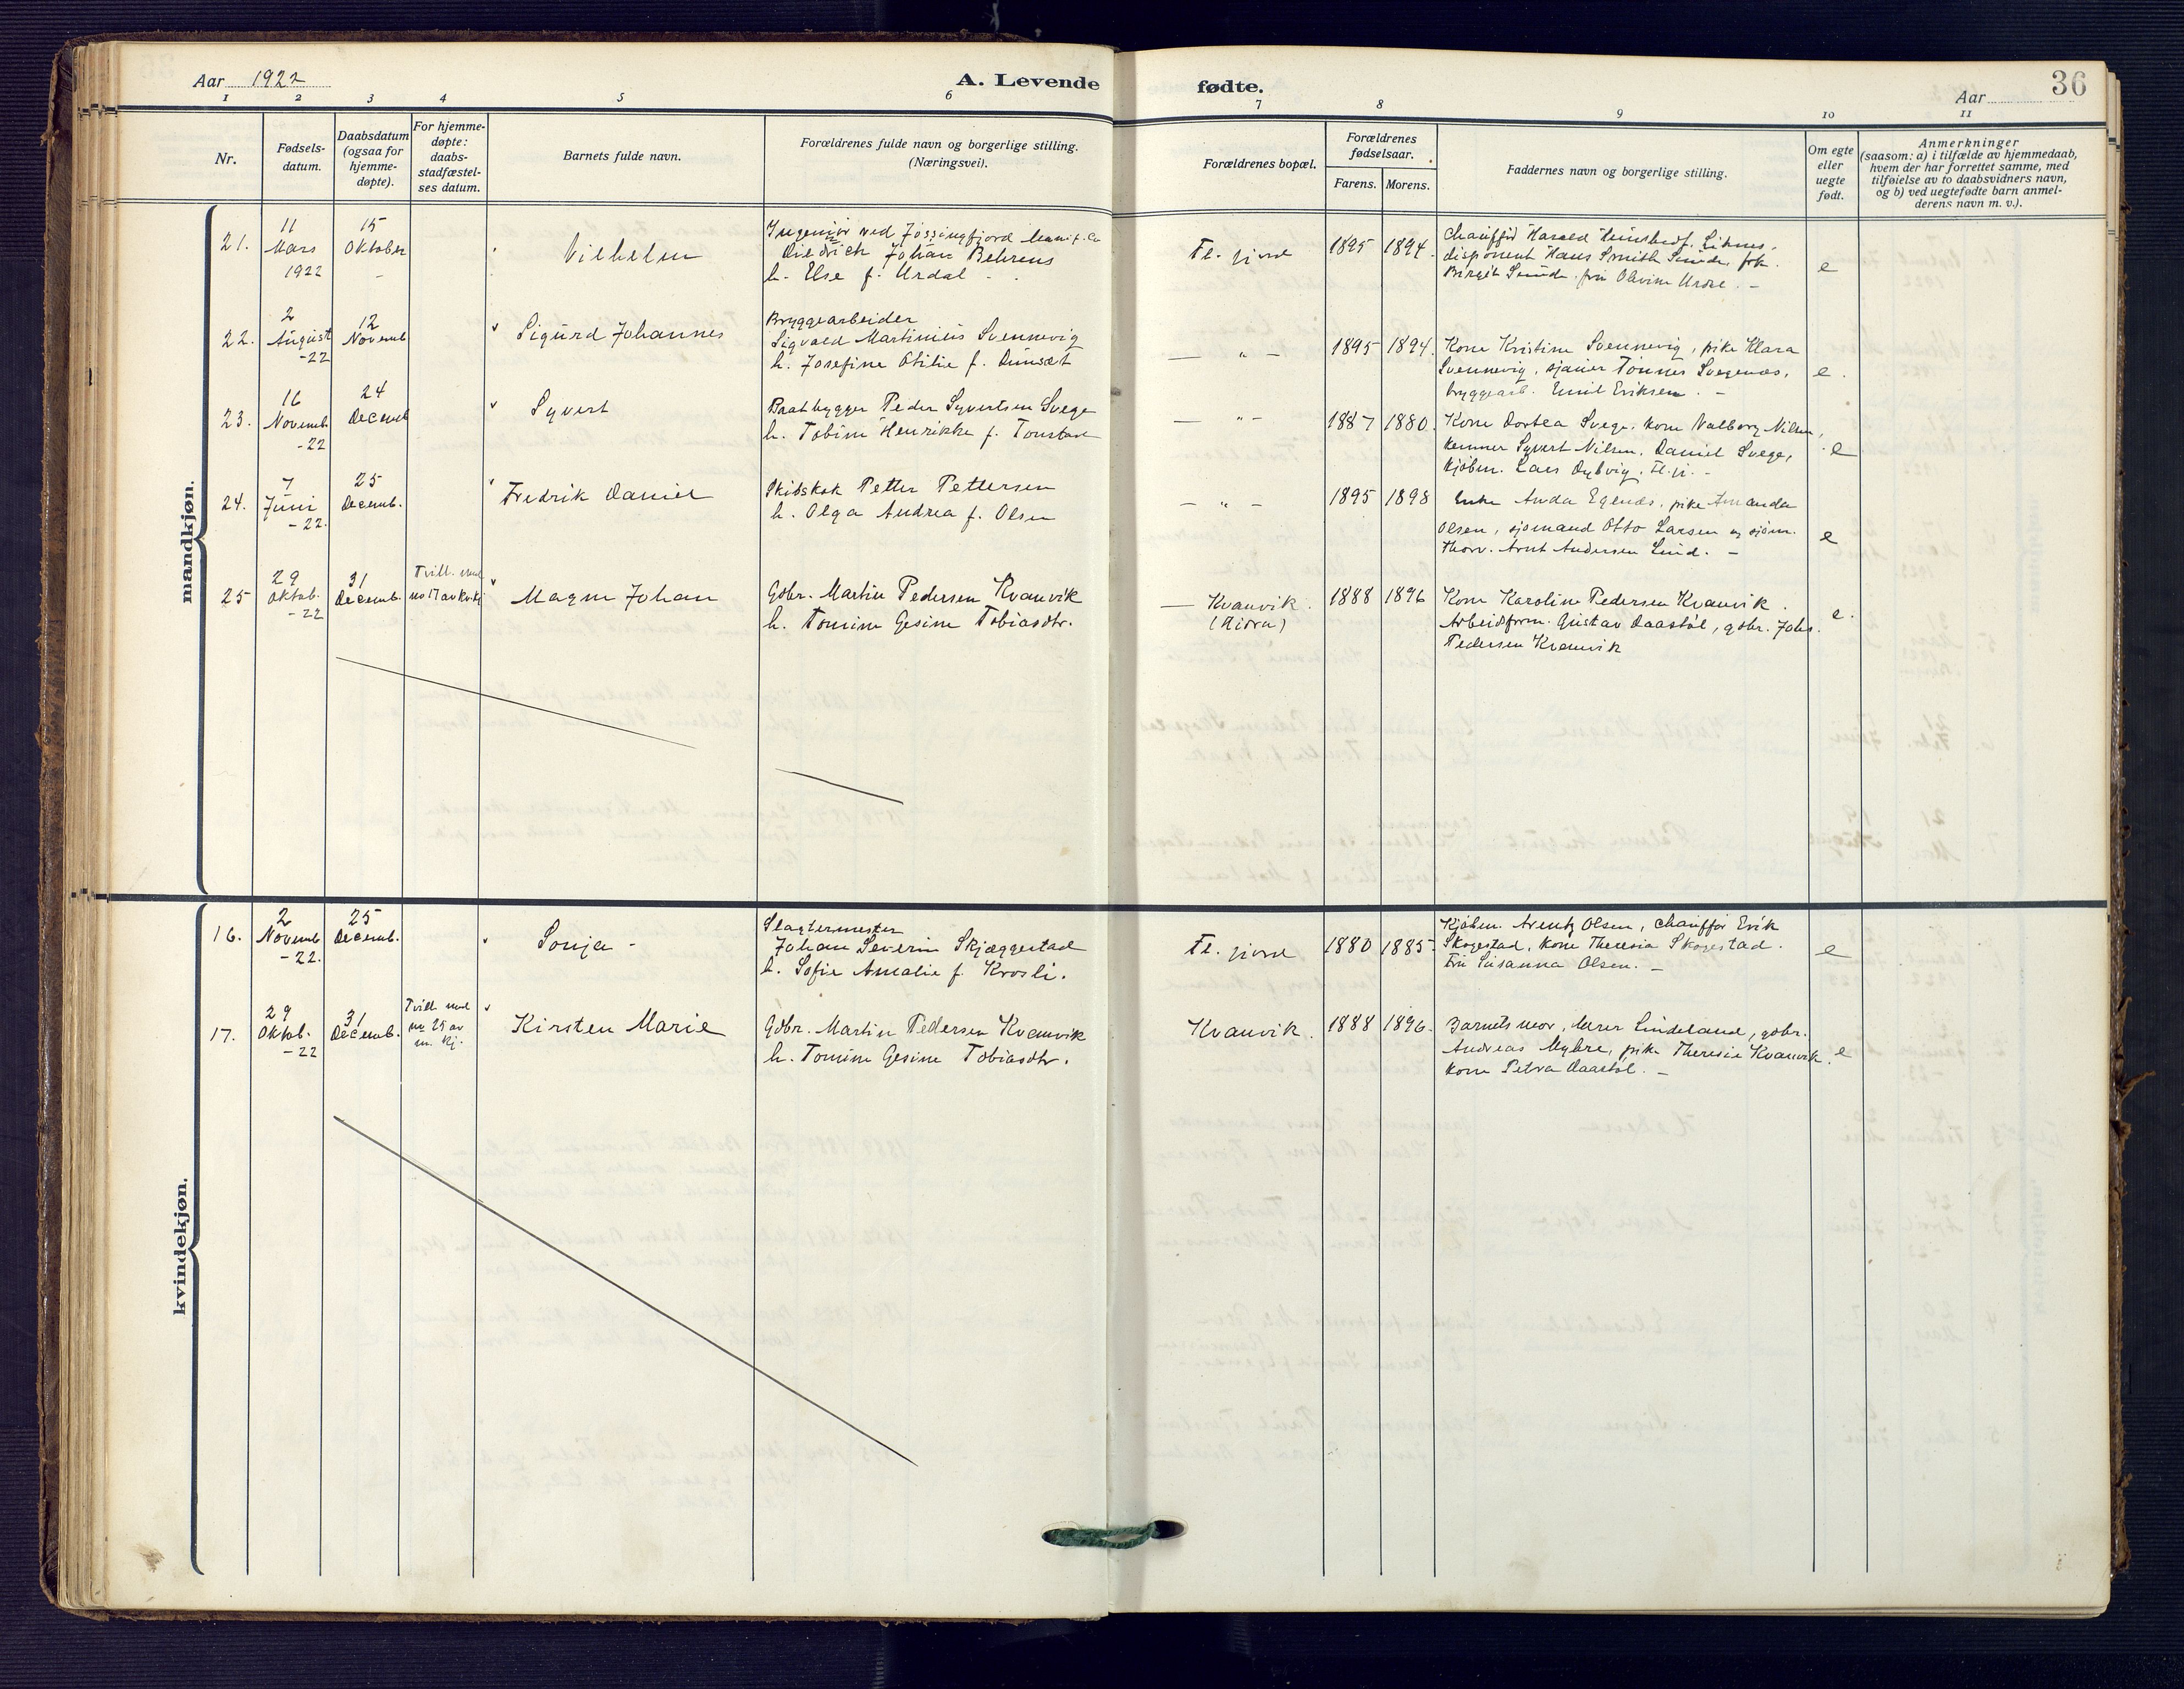 Aar 1922
A. Levende fødte.
Aar
36
1 2 3 4 5 6 7 8 9 10 11
Nr.
Fødsels-
datum.
Daabsdatum
(ogsaa for
hjemme-
døpte).
For hjemme-
døpte:
daabs-
stadfæstel-
ses datum.
Barnets fulde navn.
Forældrenes fulde navn og borgerlige stilling.
(Næringsvei).
Forældrenes bopæl.
Forældrenes
fødselsaar.
Farens. Morens.
Faddernes navn og borgerlige stilling.
Om egte
eller
uegte
født.
Anmerkninger
(saasom: a) i tilfælde av hjemmedaab,
hvem der har forrettet samme, med
tilføielse av to daabsvidners navn,
og b) ved uegtefødte barn anmel-
derens navn m. v.).
mandkjøn.
21.
11
Mars
1922
15
Oktober
-
Vilhelm
Ingeniør ved Jøssingfjord Manuf. Co
Diedrich Johan Behrens
h. Else f. Urdal
Fl. fjord
1895 1894.
Chauffør Harald
disponent Hans Smith Sunde, frk.
Birgit Sunde, fru Olivine -
e
22.
2
August
-22
12
Novemb
Sigurd Johannes
Bryggearbeider
Sigvald Martinius Svennevig
h. Josefine Otilie f.
— " -
1895 1894.
Kone Kristine Svennevig, pike Klara
Svennevig, Tønnes Svegenæs,
bryggearb. Emil Eriksen. -
e.
23.
16
Novemb
-22
24
Decemb
Syvert
Baatbygger Peder Syvertsen Svege
h. Tobine Henrikke f. Tonstad
— " -
1887 1880.
Kone Dortea Svege, kone Valborg Nilsen,
kemner Syvert Nilsen, Daniel Svege,
kjøbm. Lars Dybvig, Fl.fj. -
e
24.
7
Juni
-22.
25
Decemb.
Fredrik Daniel
Skibskok Petter Pettersen
h. Olga Andrea f. Olsen
— " -
1895 1898
Enke Anda Egenæs, pike Amanda
Olsen, sjømand Otto Larsen og sjøm.
Thorv. Arnt Andersen Lind. -
e
25
29
Oktob.
-22
31
Decemb.
Tvill. med
no 17 av kv.kj
Magne Johan
Gdbr. Martin Pedersen Kvanvik
h. Tomine Gesine Tobiasdtr.
— Kvanvik.
(Hidra)
1888 1896
Kone Karoline Pedersen Kvanvik.
Arbeidsform. Gustav Daastøl, gdbr. Johs.
Pedersen Kvanvik
e.
kvindekjøn.
16.
2
Novemb
-22.
25
Decemb.
Sonja -
Slagtermester
Johan Severin Skjæggestad
h. Sofie Amalie f. Krosli.
Fl. fjord
1880 1885.
Kjøbm. Arentz Olsen, chauffør Erik
Skogestad, kone Theresia Skogestad.
Fru Susanna Olsen. -
e
17.
29
Oktob.
-22
31
Decemb.
Tvill. med
no 25 av
m. kj.
Kirsten Marie
Gdbr. Martin Pedersen Kvanvik
h. Tomine Gesine Tobiasdtr.
Kvanvik.
1888 1896.
Barnets mor, lærer Lindeland, gdbr.
Andreas Myhre, pike Theresie Kvanvik.
kone Petra Daastøl. -
e